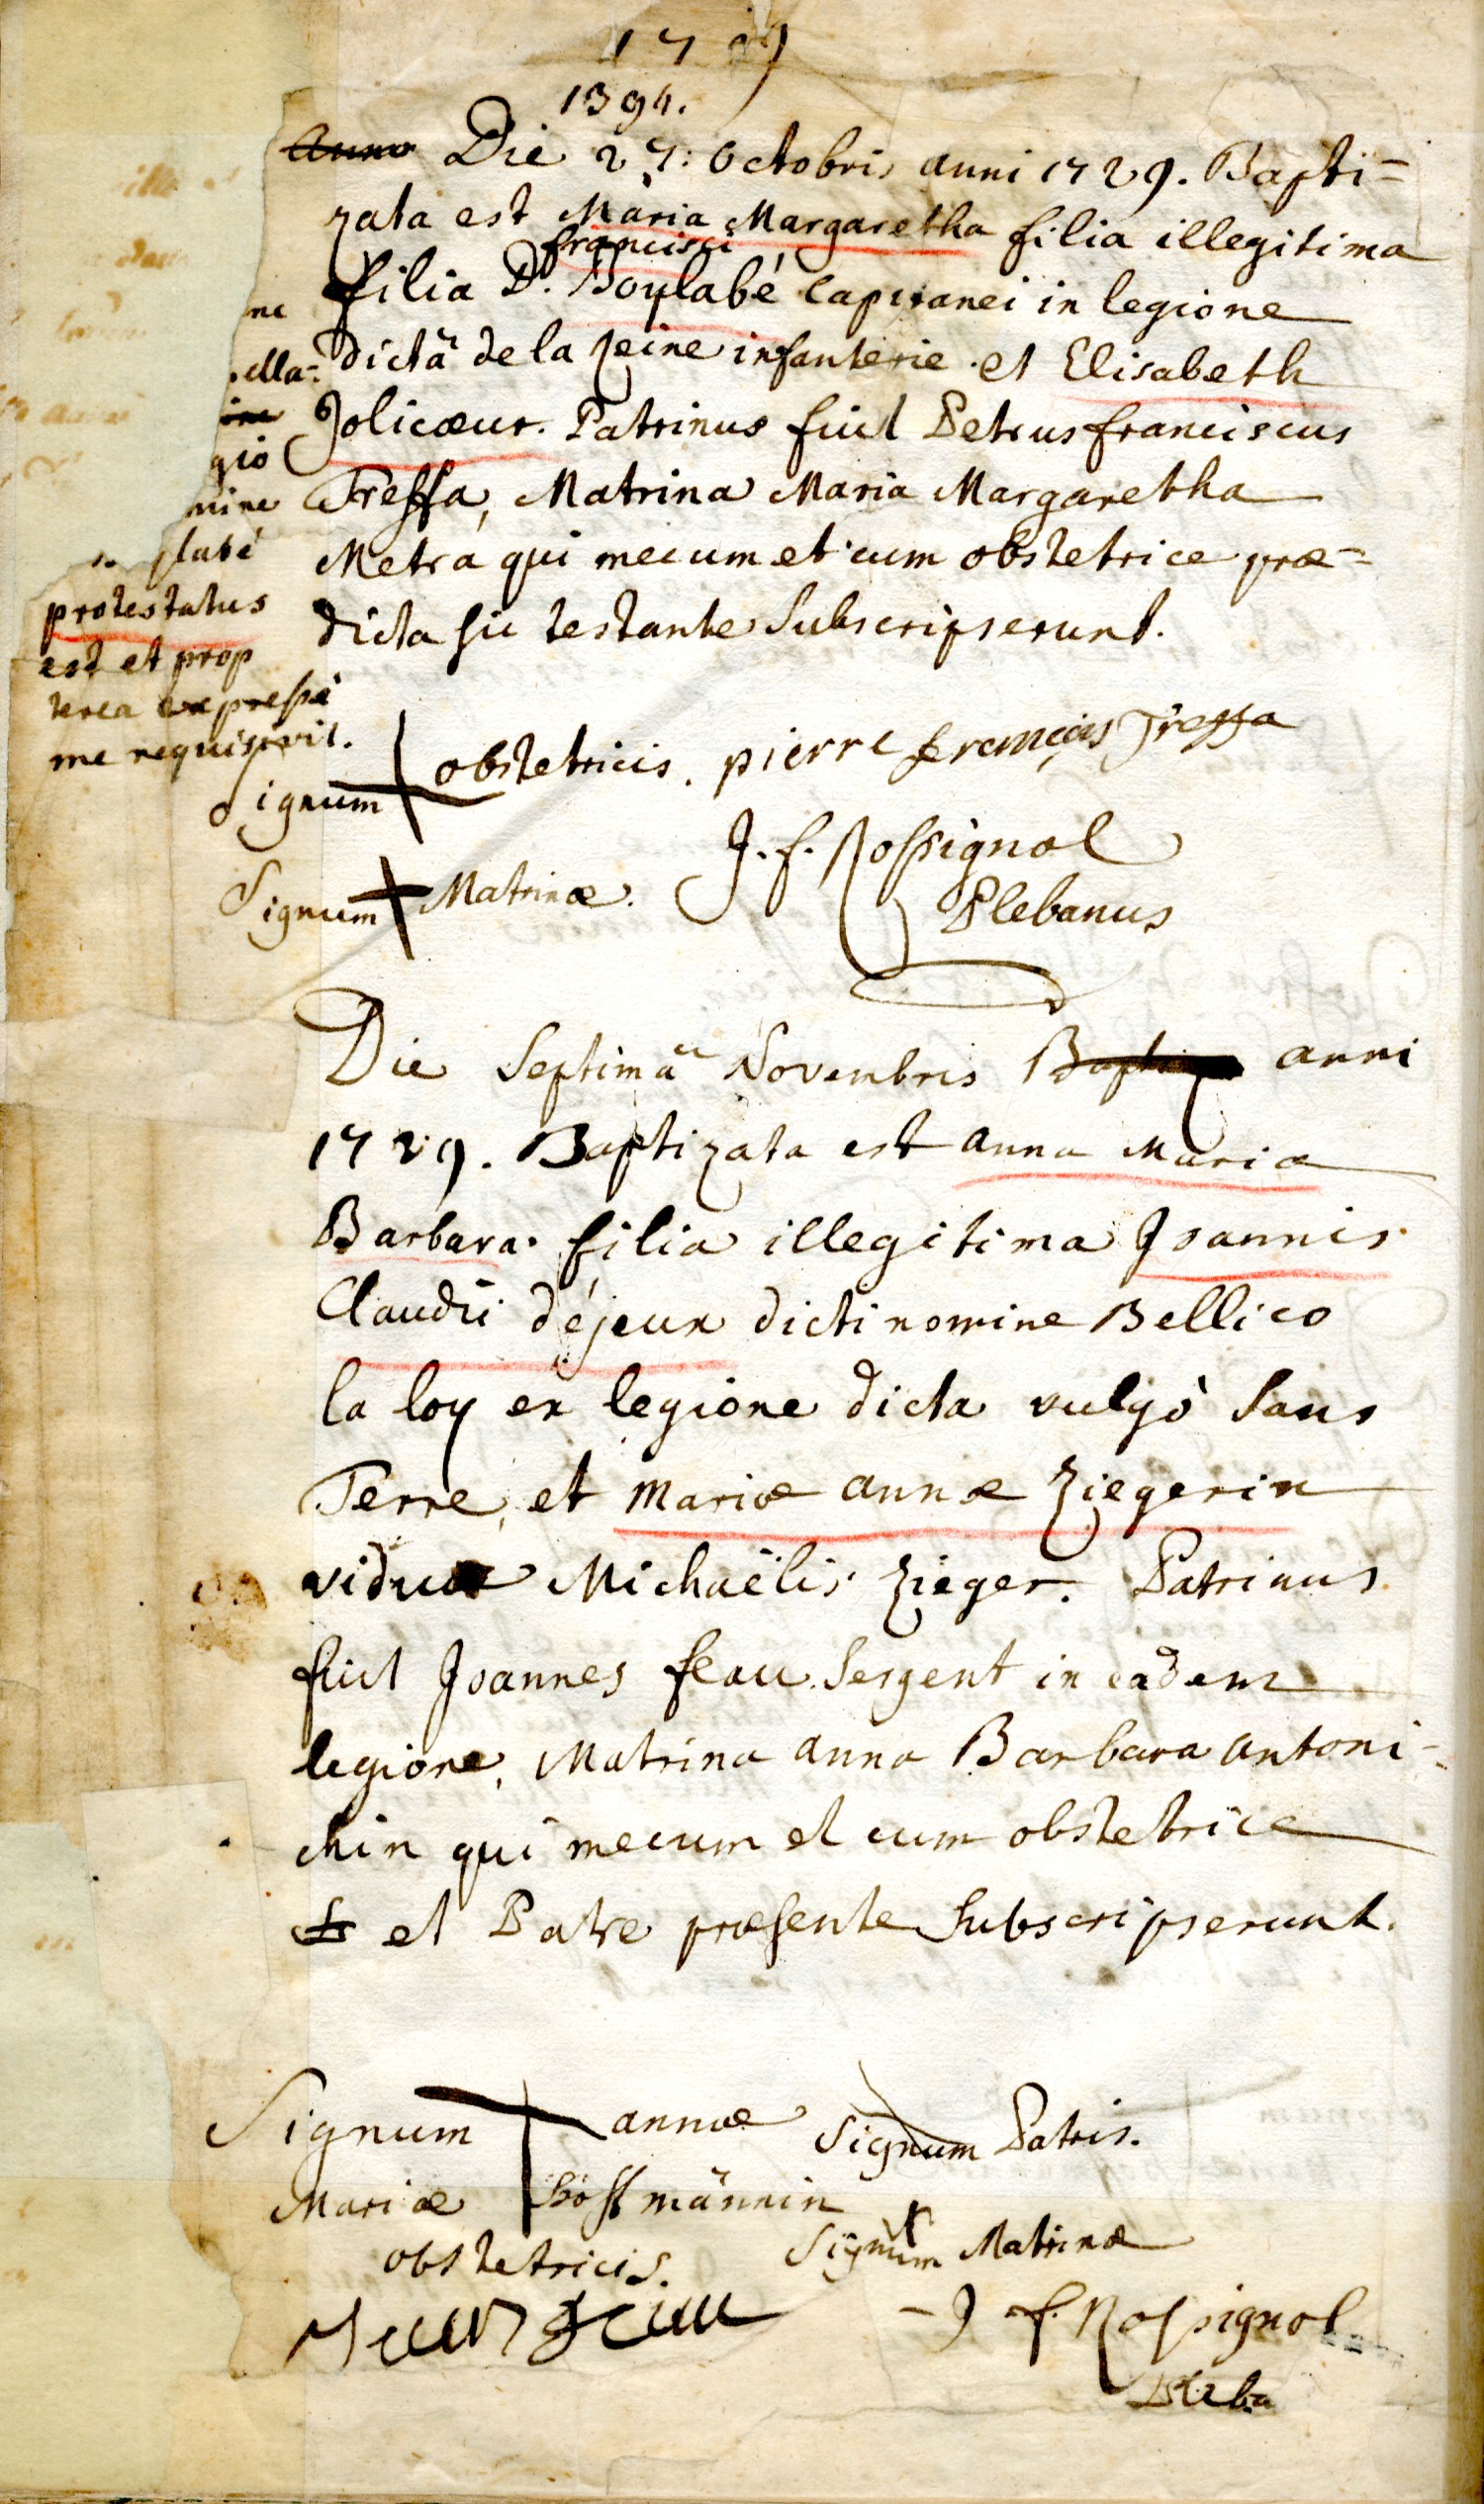 1729
1394.
Anno Die 27: Octobris anni 1729. Bapti=
zata est Maria Margaretha filia illegitima
francisci
filia D. Boylabé Capitanei in legione
dictâ de la reine infanterie et Elisabeth
Jolicœur. Patrinus fuit Petrus franciscus
Tressa, Matrina Maria Margaretha
Metra qui mecum et cum obstetrice præ=
dicta sic testante Subscripserunt.
ne
ella=
gio
mine
labé
protestatus
est et prop
terea expressè
me requisivit.
Signum obstetricis. pierre françois Tressa
J. f. Rossignol
Signum Matrinæ.
Plebanus
Die Septimâ Novembris Baptiza anni
1729. Baptizata est anna Maria
Barbara. filia illegitima Joannis
Claudii déjeux dicti nomine Bellico
la loy ex legione dicta vulgò Sans
Terre, et Mariæ annæ Ziegerin
viduæ Michaëlis Zieger. Patrinus
fuit Joannes feau. Sergent in eadem
legione, Matrina anna Barbara Antoni-
chin qui mecum et cum obstetrice
et Patre præsente Subscripserunt.
Signum annæ Signum Patris.
Mariæ hoffmännin
obstetricis. Signum Matrinæ
J f. Rossignol
Pleba